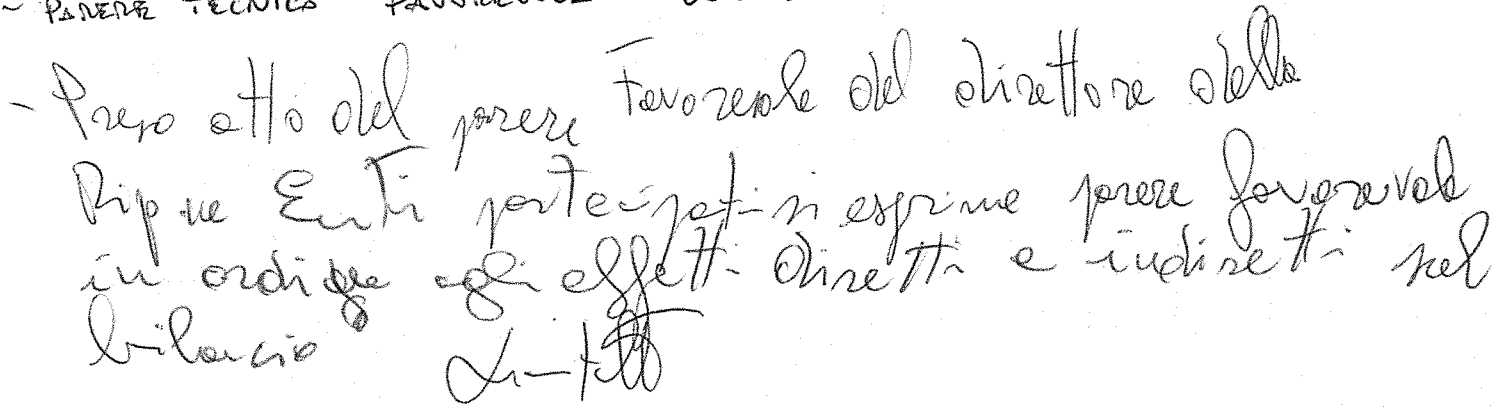 - PARERE TECNICO FAVOREVOLE
- Preso atto del parere favorevole del direttore della
Rip.ne Enti partecipati si esprime parere favorevole
in ordine agli effetti diretti e indiretti sul
bilancio